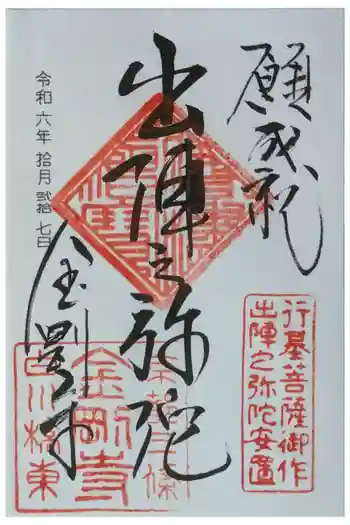 願成就
行基菩薩御作
出陣之弥陀安置
出陣之弥陀
令和六年拾月弐拾七日
金剛寺
金剛寺
白川橋東